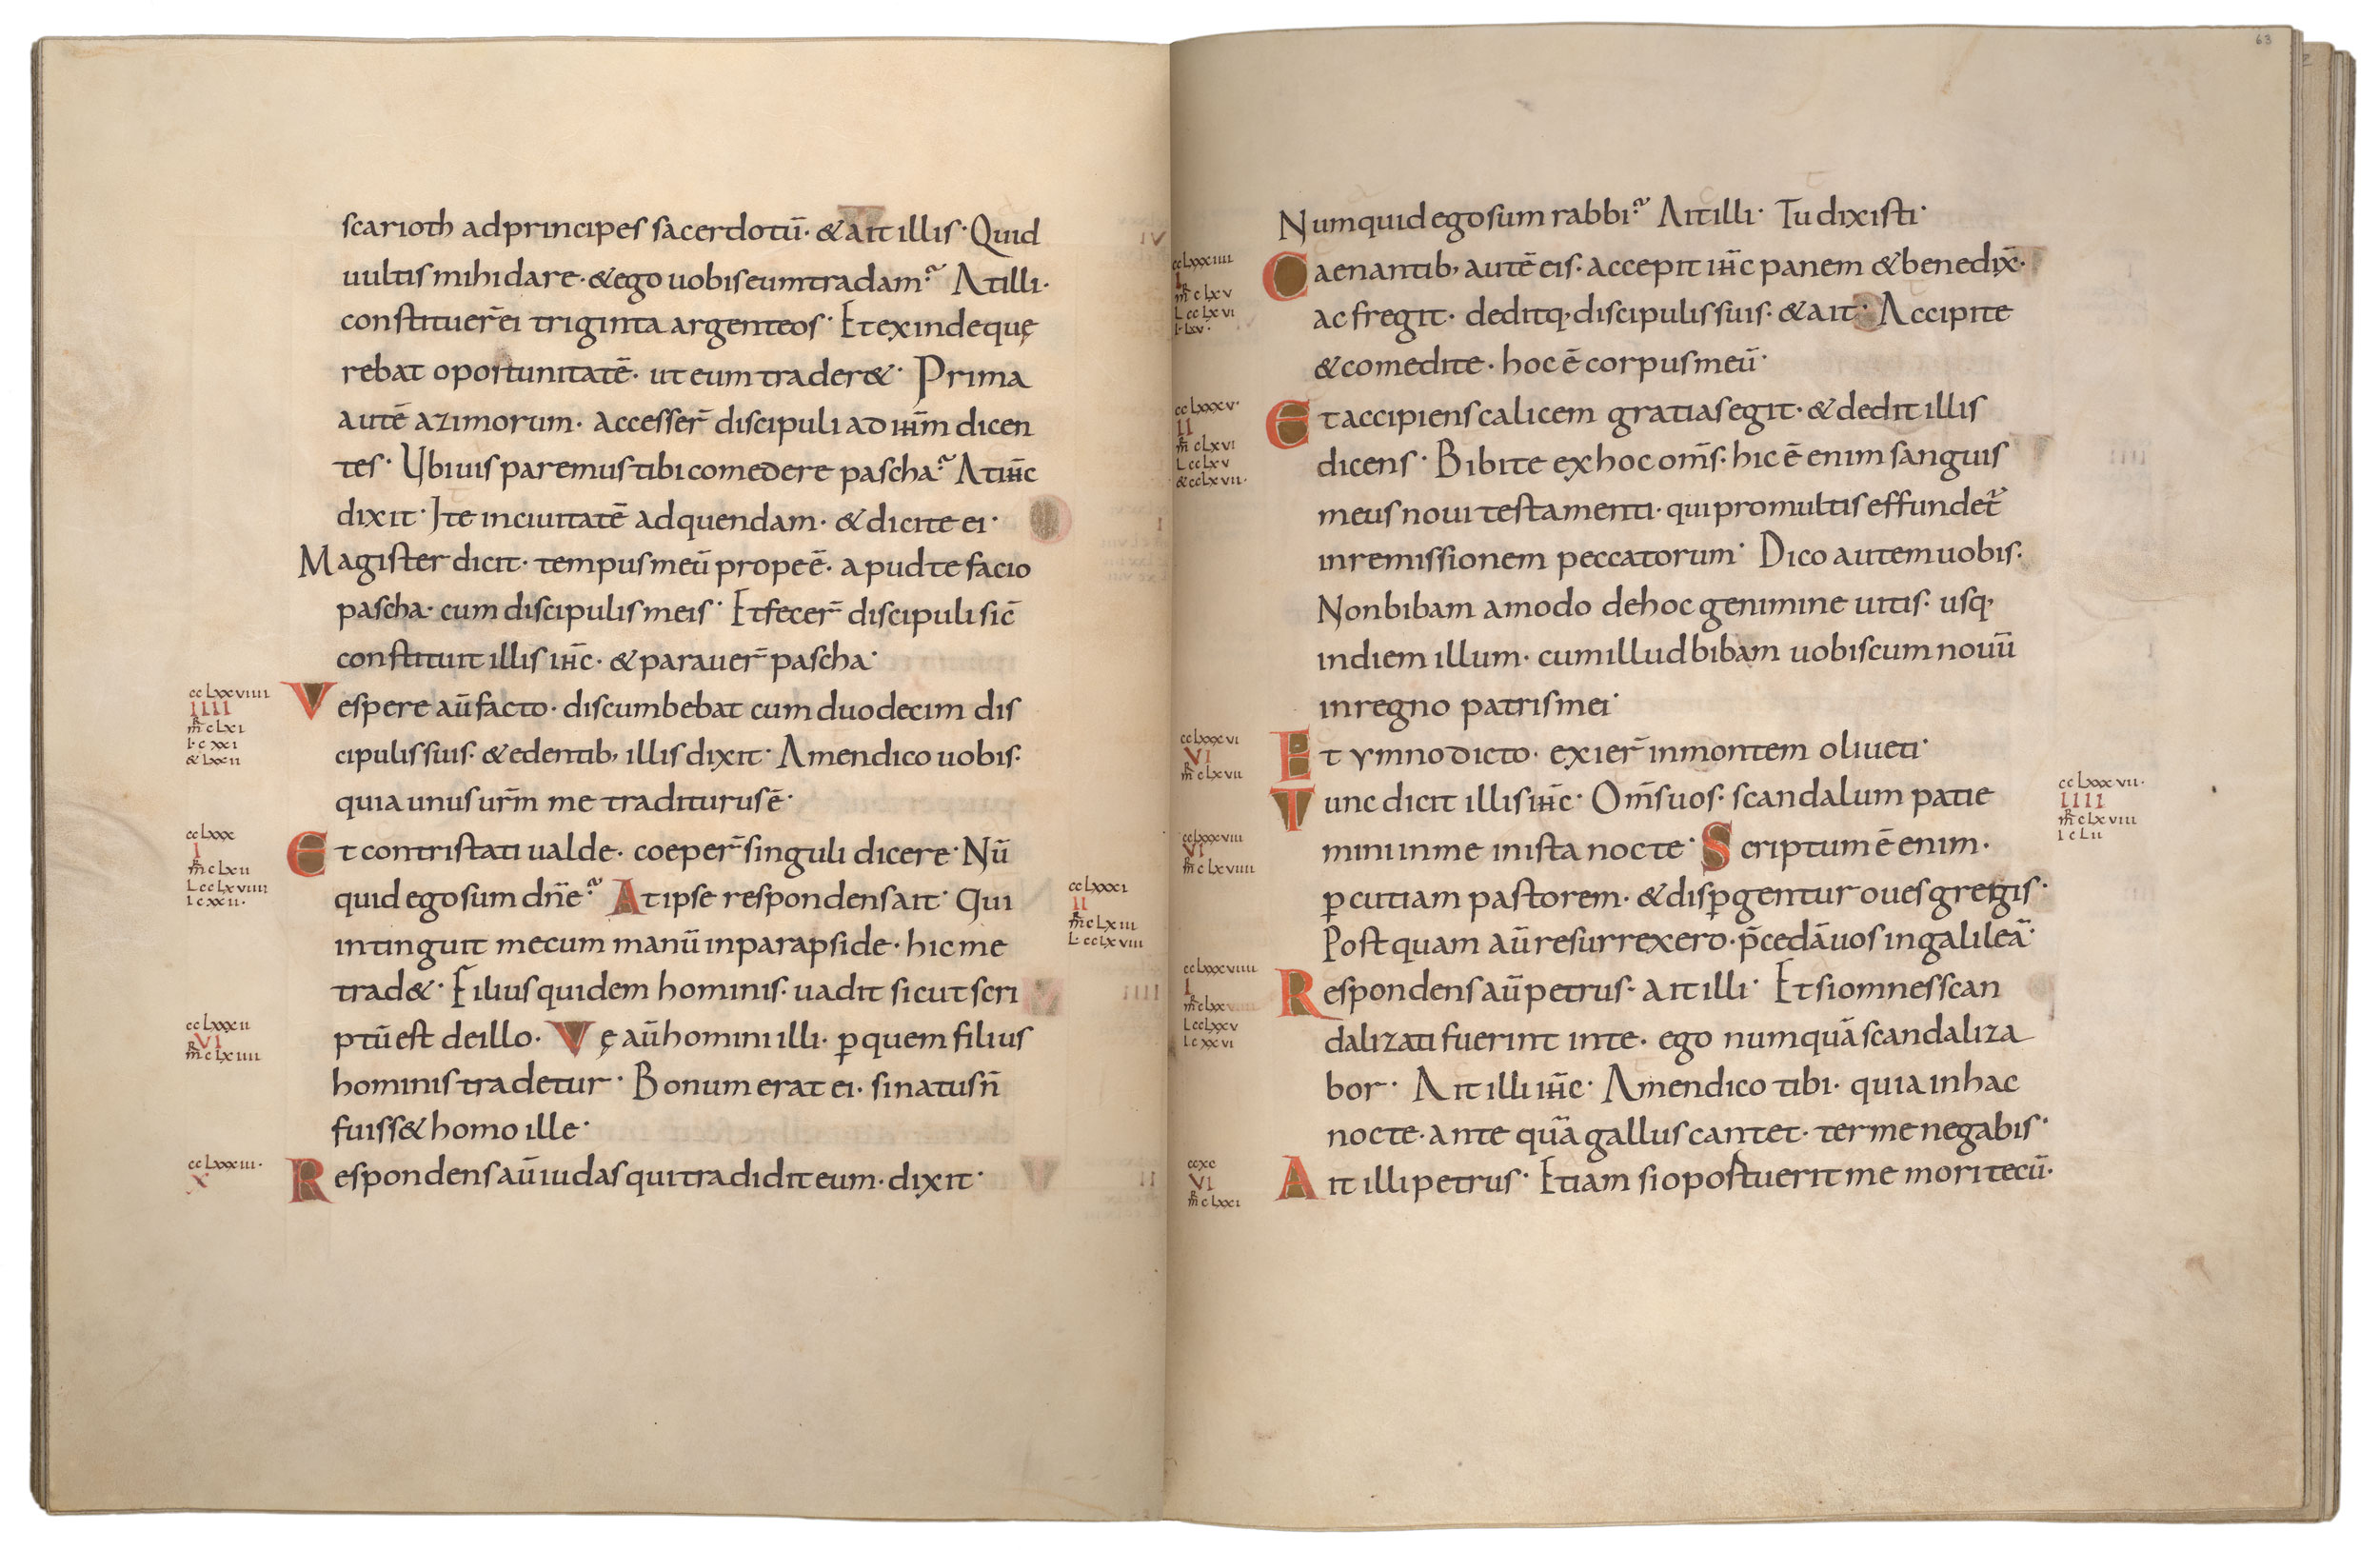 scarioth ad principes sacerdotū· & ait illis· Quid
uultis mihi dare· & ego uobis eum tradam? At illi·
constituer̄ ei triginta argenteos· Et exinde quę
rebat oportunitatē· ut eum trader&· Prima
autē azimorum· accesser̄ discipuli ad ihm̄ dicen
tes· Ubi uis paremus tibi comedere pascha? At ihc̄
dixit· Ite in ciuitatē ad quendam· & dicite ei·
Magister dicit· tempus meū prope ē· apud te facio
pascha· cum discipulis meis· Et fecer̄ discipuli sic̄
constituit illis ihc̄· & parauer̄ pascha·
ccLxxviiii
IIII
mr̄ cLxi
L· cxxi
& Lxxii
Vespere aū facto· discumbebat cum duodecim dis
cipulis suis· & edentib, illis dixit· Amen dico uobis·
quia unus urm̄ me traditurus ē·
ccLxxx
I
mr̄ cLxii
L ccLxviiii
I cxxii·
Et contristati ualde· coeper̄ singuli dicere· Nū
quid ego sum dn̄e? At ipse respondens ait· Qui
ccLxxxi
II
mr̄ cLxiii
L· ccLxviii
intinguit mecum manū in parapside· hic me
trad&· Filius quidem hominis· uadit sicut scri
ccLxxxii
VI
mr̄ cLxiiii
ptū est de illo· Vę aū homini illi· ꝑ quem filius
hominis tradetur· Bonum erat ei· si natus n̄
fuiss& homo ille·
ccLxxxiii·
X
Respondens aū iudas qui tradidit eum· dixit·
63
Numquid ego sum rabbi? Ait illi· Tu dixisti·
ccLxxxiiii
I
mr̄ cLxv
L ccLxvi
I· Lxv·
Caenantib, autē eis· accepit ihc̄ panem & benedix̄·
ac fregit· deditq, discipulis suis· & ait· Accipite
& comedite· hoc ē corpus meū·
ccLxxxv·
II
mr̄ cLxvi
L ccLxv
& ccLxvii·
Et accipiens calicem gratias egit· & dedit illis
dicens· Bibite ex hoc om̄s· hic ē enim sanguis
meus noui testamenti· qui pro multis effundet᷑
in remissionem peccatorum· Dico autem uobis·
Non bibam amodo de hoc genimine uitis· usq,
in diem illum· cum illud bibam uobiscum nouū
in regno patris mei·
ccLxxxvi
VI
mr̄ cLxvii
Et ymno dicto· exier̄ in montem oliueti·
Tunc dicit illis ihc̄· Om̄s uos· scandalum patie
ccLxxxvii·
IIII
mr̄ cLxviii
I cLii
ccLxxxviii
VI
mr̄ cLxviiii
mini in me in ista nocte· Scriptum ē enim·
ꝑcutiam pastorem· & disꝑgentur oues gregis·
Postquam aū resurrexero· p̄cedā uos in galileā·
ccLxxxviiii
I
mr̄ cLxx
L ccLxxv
I cxxvi
Respondens aū petrus· ait illi· Et si omnes scan
dalizati fuerint in te· ego numquā scandaliza
bor· Ait illi ihc̄· Amen dico tibi· quia in hac
nocte· ante quā gallus cantet· ter me negabis·
ccxc
VI
mr̄ cLxxi
Ait illi petrus· Etiam si oportuerit me mori tecū·